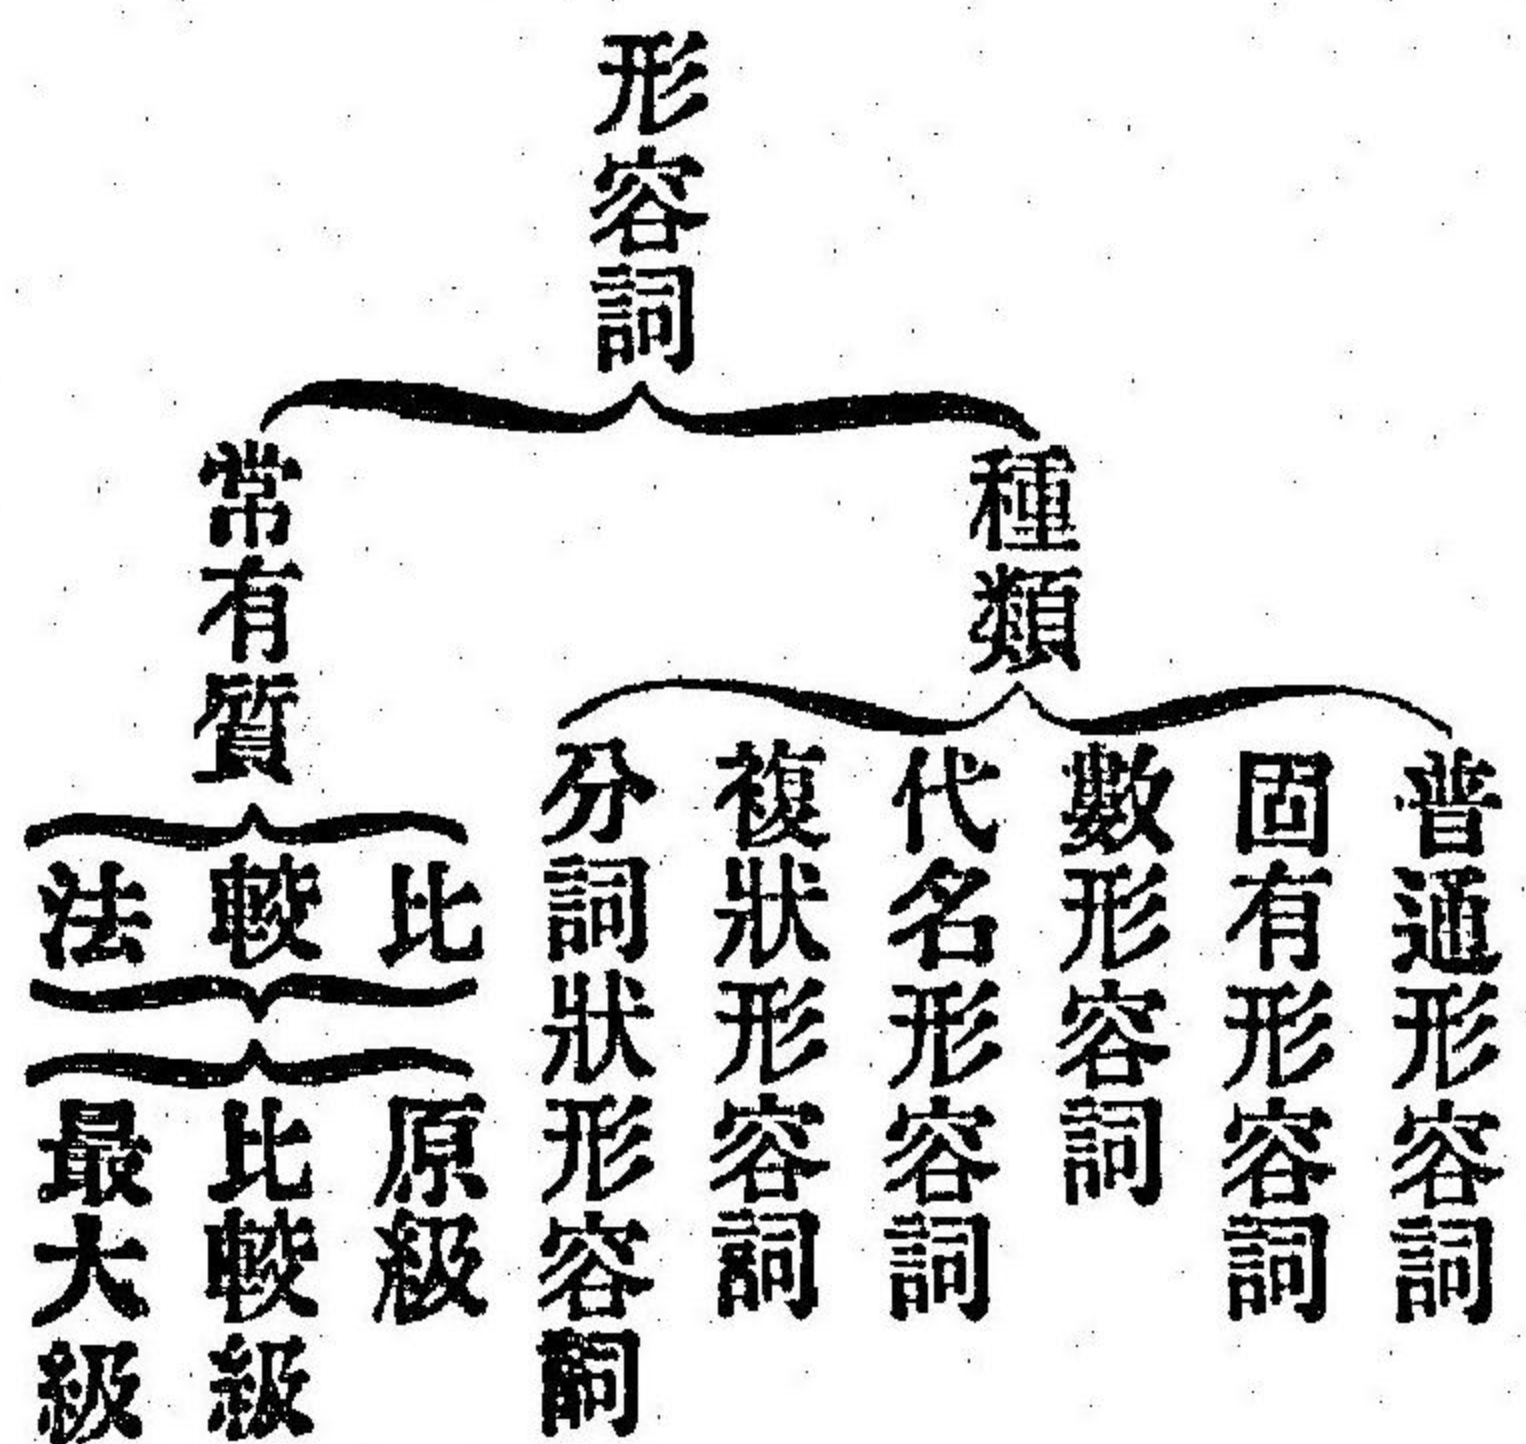 形容詞
種類
普通形容詞
固有形容詞
數形容詞
代名形容詞
複狀形容詞
分詞狀形容詞
常有質
比較法
原級
比較級
最大級